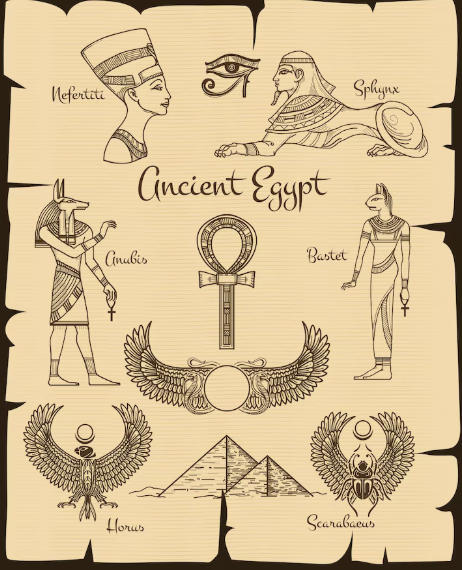 Nefertiti
Sphynx
Ancient Egypt
Anubis
Bastet
Horus
Scarabaeus